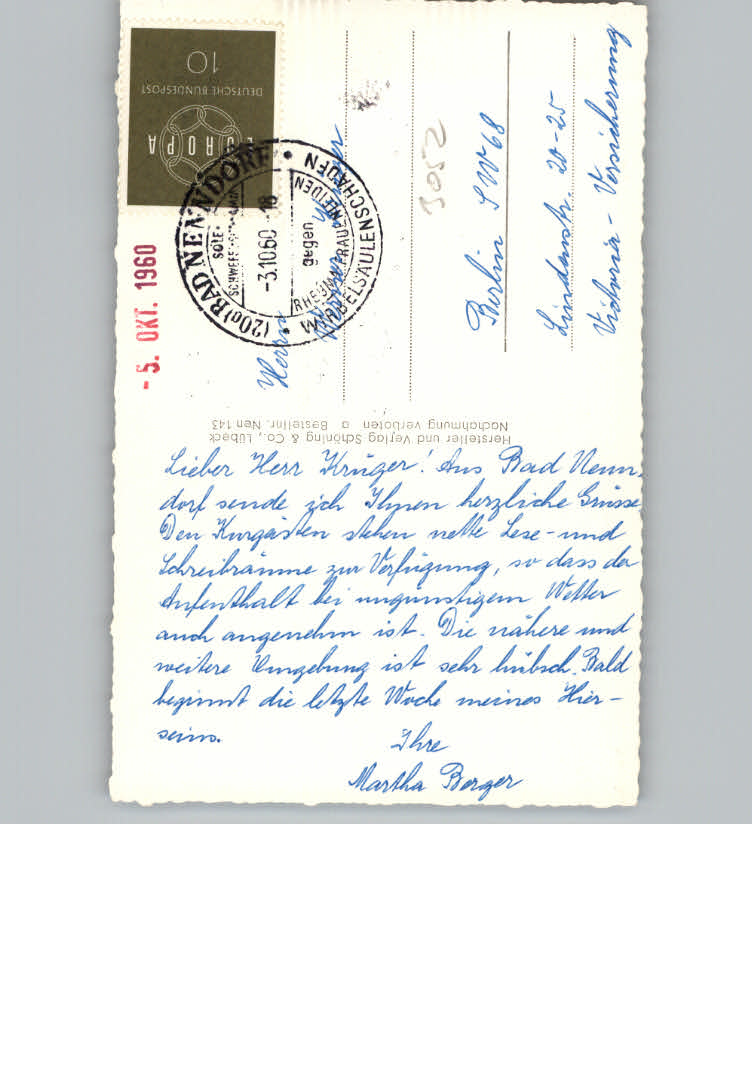 Lieber Herr Krüger! Aus Bad Nenn-
dorf sende ich Ihnen herzliche Grüsse.
Den Kurgästen stehen nette Lese- und
Schreibräume zur Verfügung, so dass der
Aufenthalt bei ungünstigem Wetter
auch angenehm ist. Die nähere und
weitere Umgebung ist sehr hübsch. Bald
beginnt die letzte Woche meines Hier-
seins.
Ihre
Martha Berger
Hersteller und Verlag Schöning & Co., Lübeck
Nachahmung verboten a Bestellnr. Nen 143
Herrn
Krüger
Berlin SW 68
Lindenstr. 20-25
Victoria - Versicherung
3052
- 5. OKT. 1960
DEUTSCHE BUNDESPOST
10
EUROPA
(20a) BAD NENNDORF
SOLE-
-3.10.60 -18
gegen
RHEUMA FRAUENLEIDEN
WIRBELSÄULENSCHÄDEN